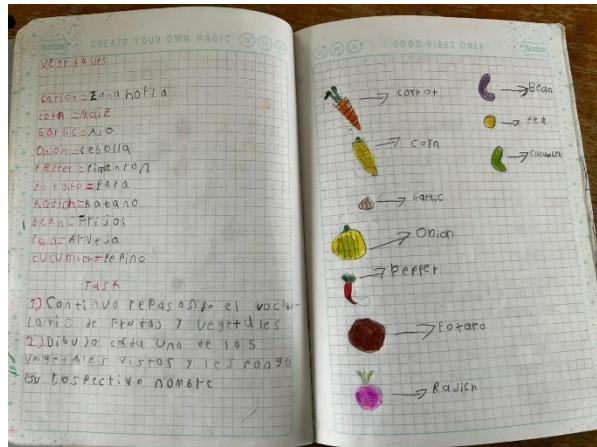 Scribe CREATE YOUR OWN MAGIC
vegetables
carlot=Zanahoria
corn=Maiz
Garlic=Ajo
Onion=cebolla
Pepper=Pimenton
Potato=PaPa
Radich=Rabano
Bean=Frijos
Pea=Arveja
cucumich=Pepino
Task
1) Continuo repasando el vocabu
lario de Frutas y vegetales
2) Dibujo cada uno de los
vegetales vistos y les pongo
su bospectivo nombre
GOOD VIBES ONLY Scribe
carrot
Bean
Pea
corn
cucumber
Garlic
Onion
pepper
Potato
Radich